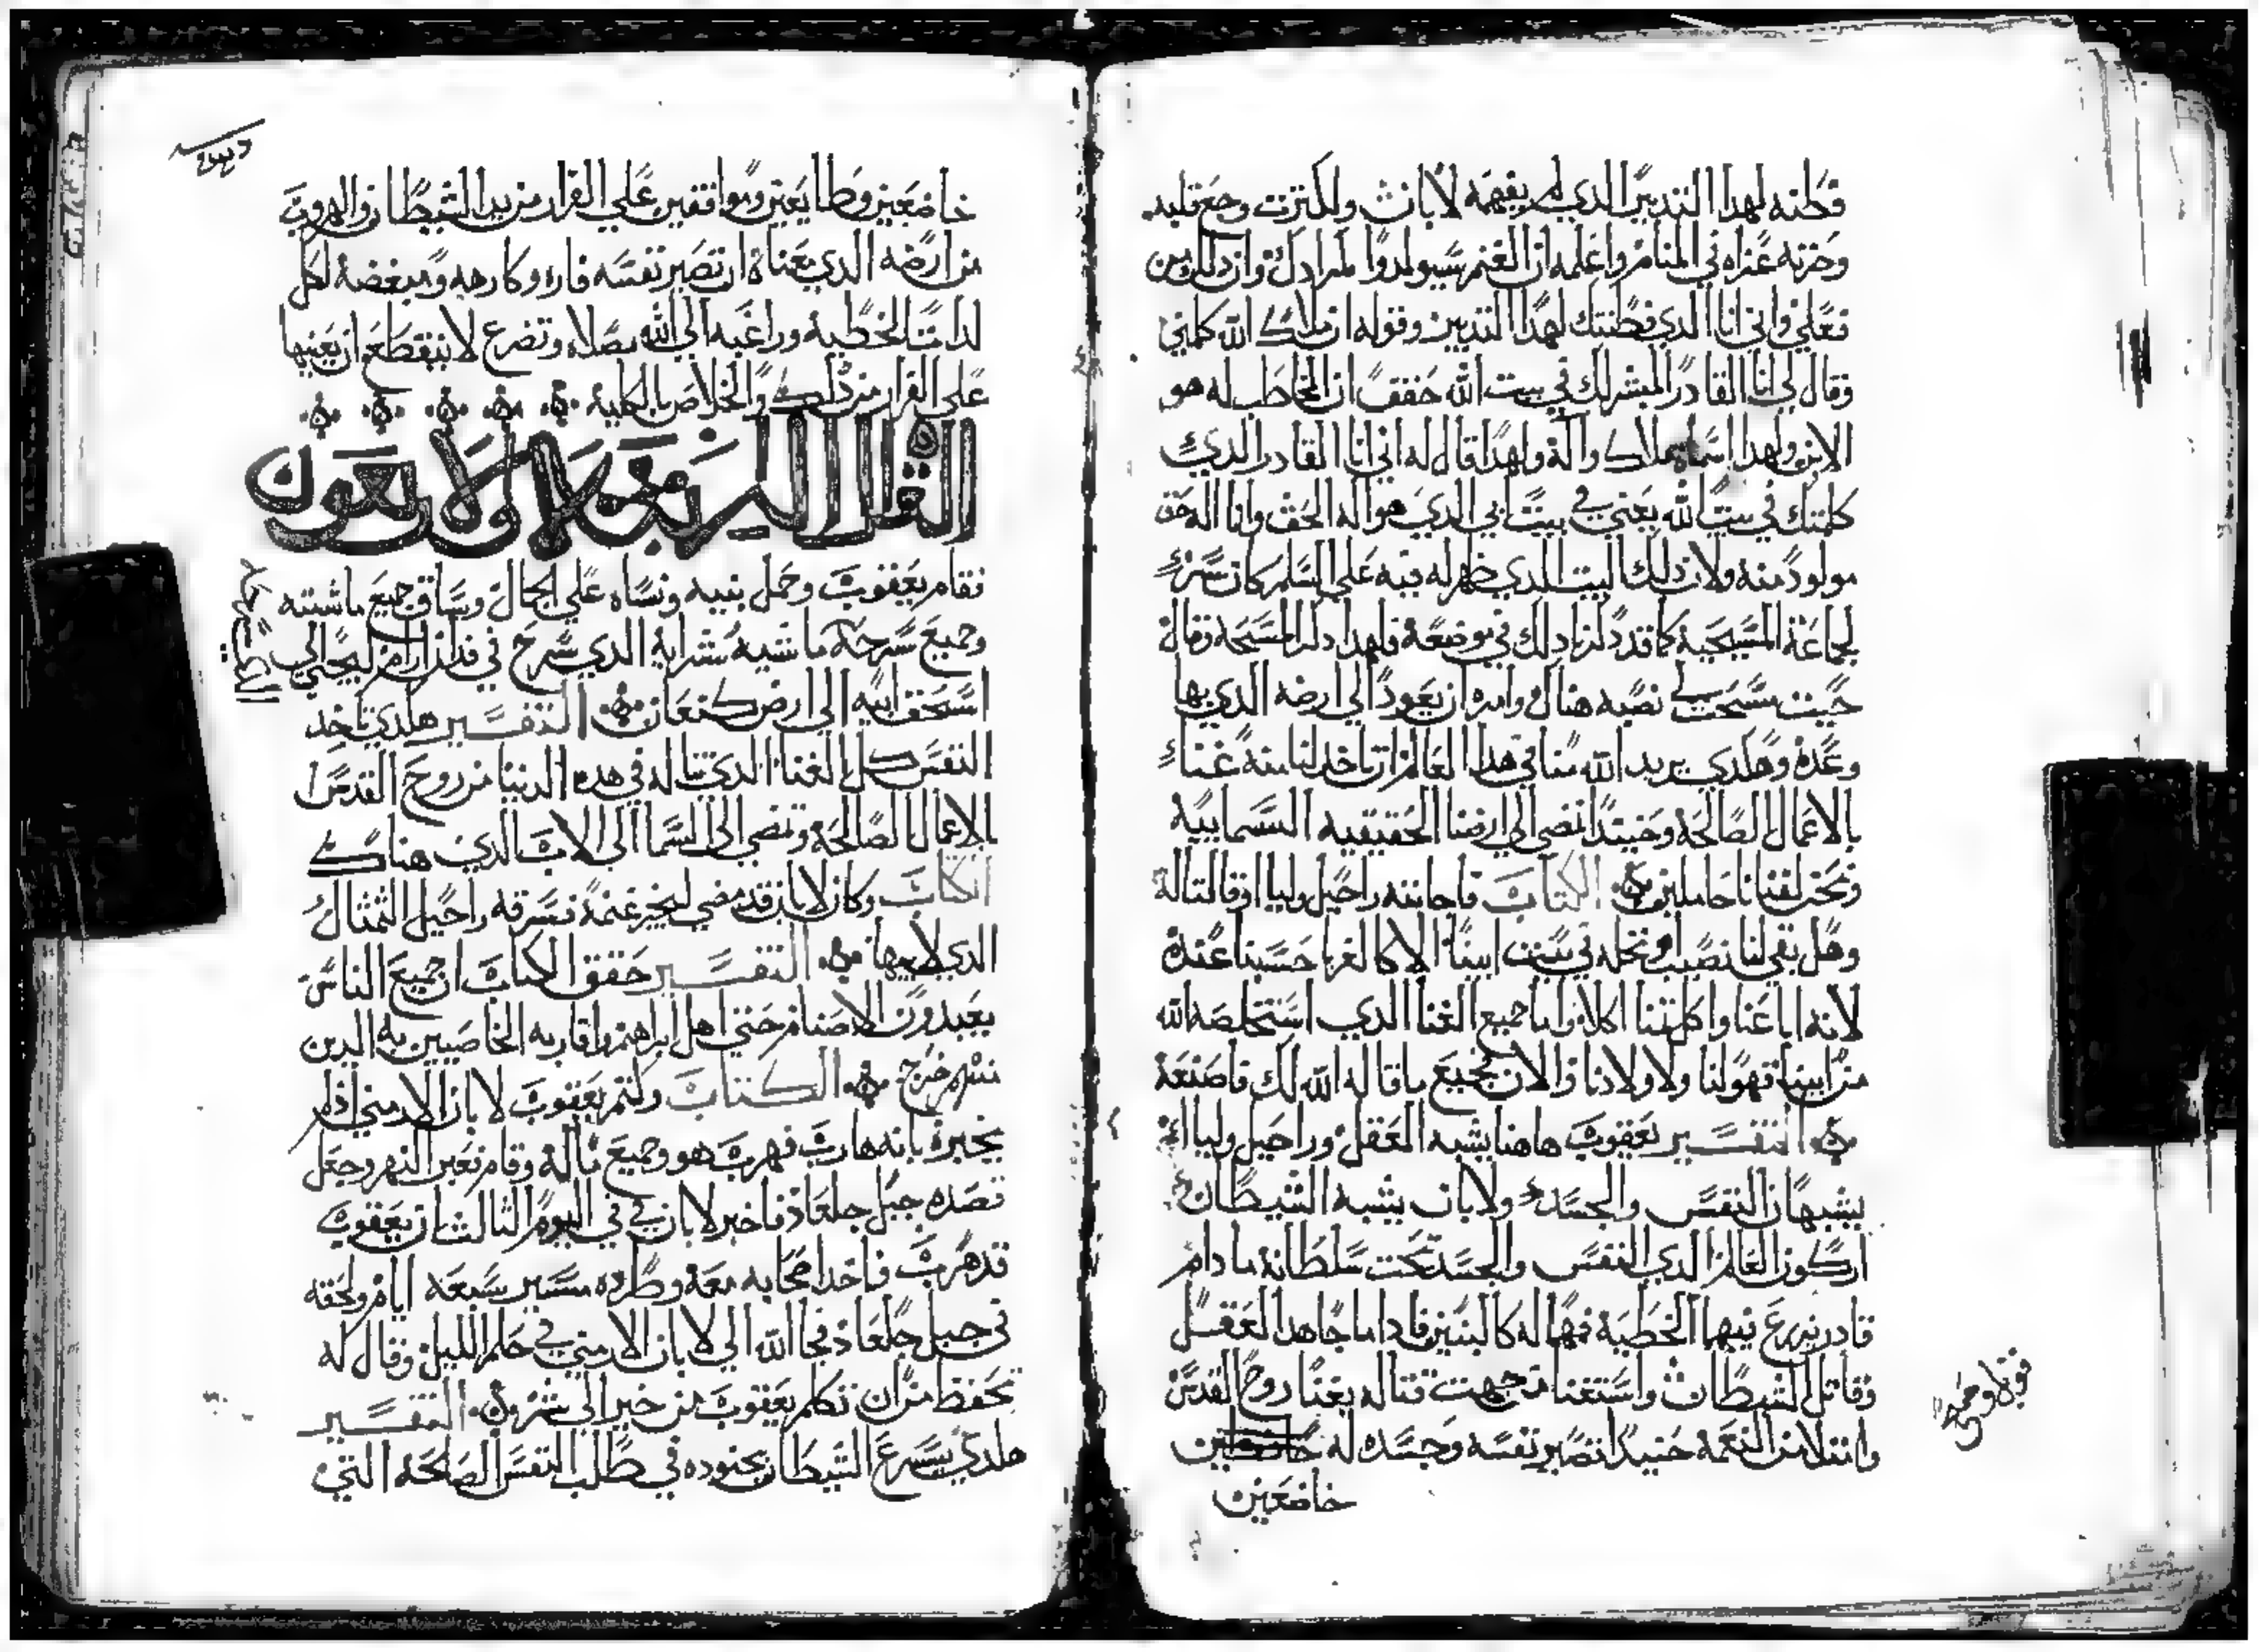 فطنه لهدا التدبير الدي لم يفهمه لابان ولكترت وجع قلبه
وحزنه عزاه في المنام واعلمه ان الغنم سيولدوا لمرادك وان دلك من
فعلي واني انا الدي فطنتك لهدا التدبير وقوله ان ملاك الله كلمني
وقال لي انا القادر المبشر لك في بيت الله حقق ان المخاطب له هو
الابن ولهدا اسماه ملاك واله ولهدا قال له اني انا القادر الدي
كلمتك في بيت الله يعني في بيت ابي الدي هو اله الحق وانا اله حق
مولود منه ولان دلك البيت الدي ظهر له فيه علي السلم كان سر
لجماعة المسيحية كما قد دكرنا دلك في موضعه فلهدا دكر المسحه وقال
حيت مسحت لي نصبه هناك وامره ان يعود الي ارضه الدي بها
وعده وهكدي يريد الله منا في هدا العالم ان ناخد لنا منه غناء
بالاعمال الصالحه وحينيدا نمضي الي ارضنا الحقيقيه السماييه
ونحن لغنانا حاملين الكتاب فاجابته راحيل وليا وقالتا له
وهل بقي لنا نصيب ونحله في بيت ابينا الا كالغربا حسبنا عنده
لانه اباعنا واكل تمننا اكلا ولنا جميع الغنا الدي استخلصه الله
من ابينا فهو لنا ولاولادنا والان فجميع ما قاله الله لك فاصنعه
التفسير يعقوب هاهنا يشبه العقل وراحيل وليا
يشبهان النفس والجسد ولابان يشبه الشيطان
اركون العالم الدي النفس والجسد تحت سلطانه ما دام
قادر يزرع فيهما الخطية فهما له كالبنتين فادا ما جاهد العقل
وقاتل الشيطان واستغنا من جهت قتاله بغنا روح القدس
وامتلا من النعمه حنيدا تصير نفسه وجسده له
خاضعين
خاضعين وطايعين وموافقين علي الفرار من يد الشيطان والهروب
من ارضه الدي معناه ان تصير نفسه فاره وكارهه ومبغضه لكل
لدات الخطيه وراغبه الي الله بصلاه وتضرع لا ينقطع ان يعينها
علي الفرار من دلك والخلاص بالكليه
الفصل السابع والاربعون
فقام يعقوب وحمل بنيه ونساه علي الجمال وساق جميع ماشيته
وجميع سرحه ماشيه شرايه الدي سرح في فدان ارام ليجي الي
اسحق ابيه الي ارض كنعان التفسير هكدي تاخد
النفس كل الغنا الدي تناله في هده الدنيا من روح القدس
بالاعمال الصالحه وتمضي الي السما الي الاب الدي هناك
الكتاب وكان لابان قد مضي ليجز غنمه فسرقه راحيل التمثال
الدي لابيها التفسير حقق الكتاب ان جميع الناس
يعبدون الاصنام حتي اهل ابراهيم واقاربه الخاصيين به الدين
منهم خرج الكتاب وكتم يعقوب لابان الارمني اد لم
يخبره بانه هارب فهرب هو وجميع ماله وقام فعبر النهر وجعل
قصده جبل جلعاد فاخبر لابان في اليوم التالت ان يعقوب
قد هرب فاخد اصحابه معه وطرده مسير سبعه ايام ولحقه
في جبل جلعاد فجا الله الي لابان الارمني في حلم الليل وقال له
تحفظ من ان تكلم يعقوب من خير الي شر التفسير
هكدي يسرع الشيطان بجنوده في طلب النفس الصالحه التي